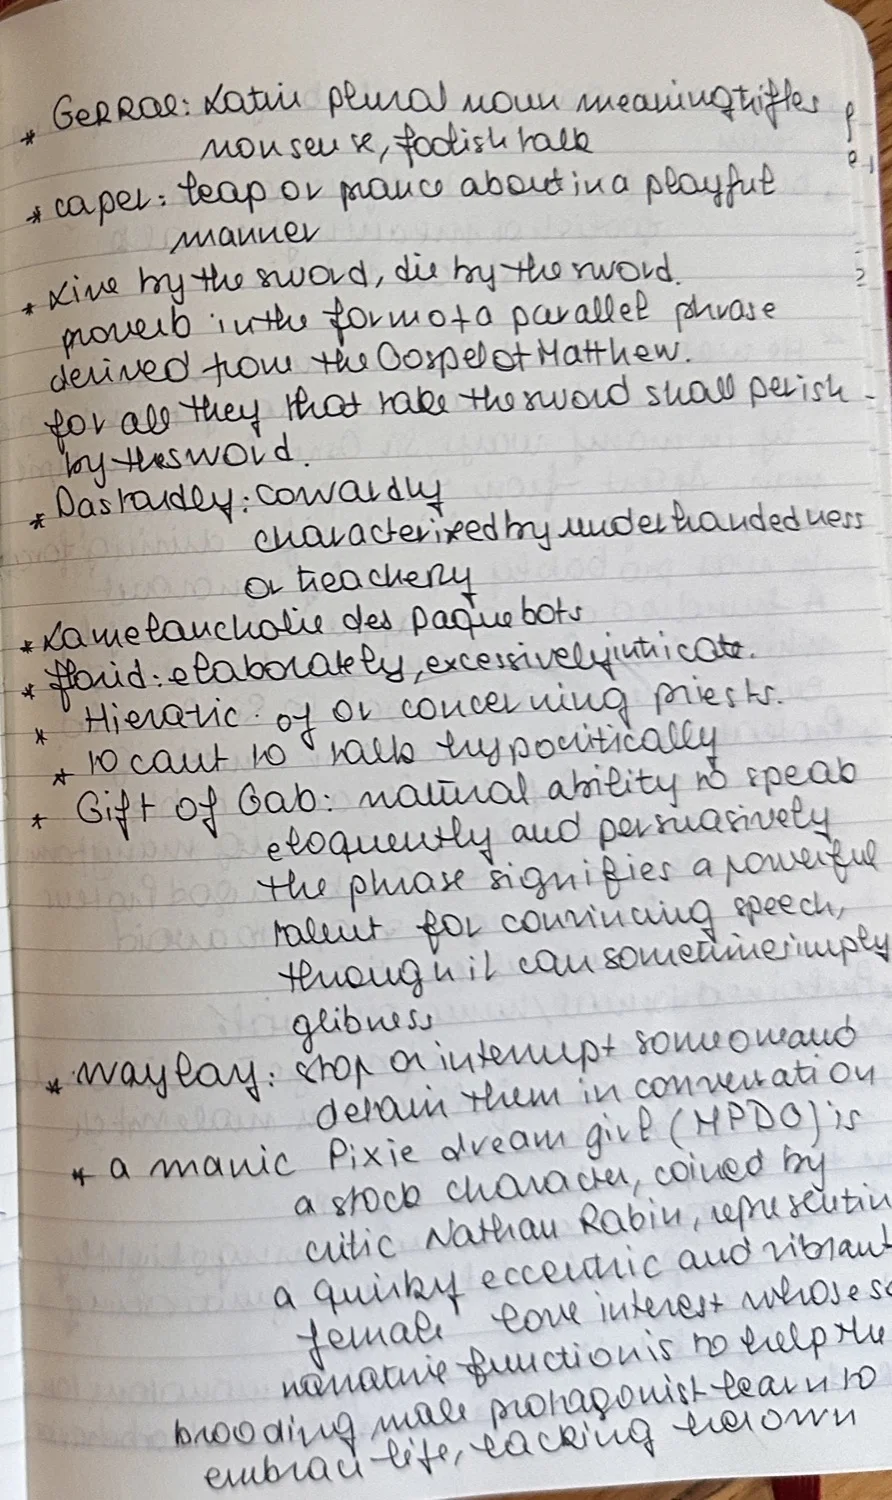 * GeRRae: Latin plural noun meaning trifles
nonsense, foolish talk
* caper: leap or prance about in a playful
manner
* Live by the sword, die by the sword.
proverb in the form of a parallel phrase
derived from the Gospel of Matthew.
for all they that take the sword shall perish
by the sword.
* Dastardly: cowardly
characterized by underhandedness
or treachery
* La melancholie des paquebots
* florid: elaborately, excessively intricate.
* Hieratic: of or concerning priests.
* to cant to talk hypocritically
* Gift of Gab: natural ability to speak
eloquently and persuasively
the phrase signifies a powerful
talent for convincing speech,
though it can sometimes imply
glibness
* waylay: stop or interrupt someone and
detain them in conversation
* a manic Pixie dream girl (MPDG) is
a stock character, coined by
critic Nathan Rabin, representin
a quirky eccentric and vibrant
female love interest whose so
narrative function is to help the
brooding male protagonist learn to
embrace life, lacking her own